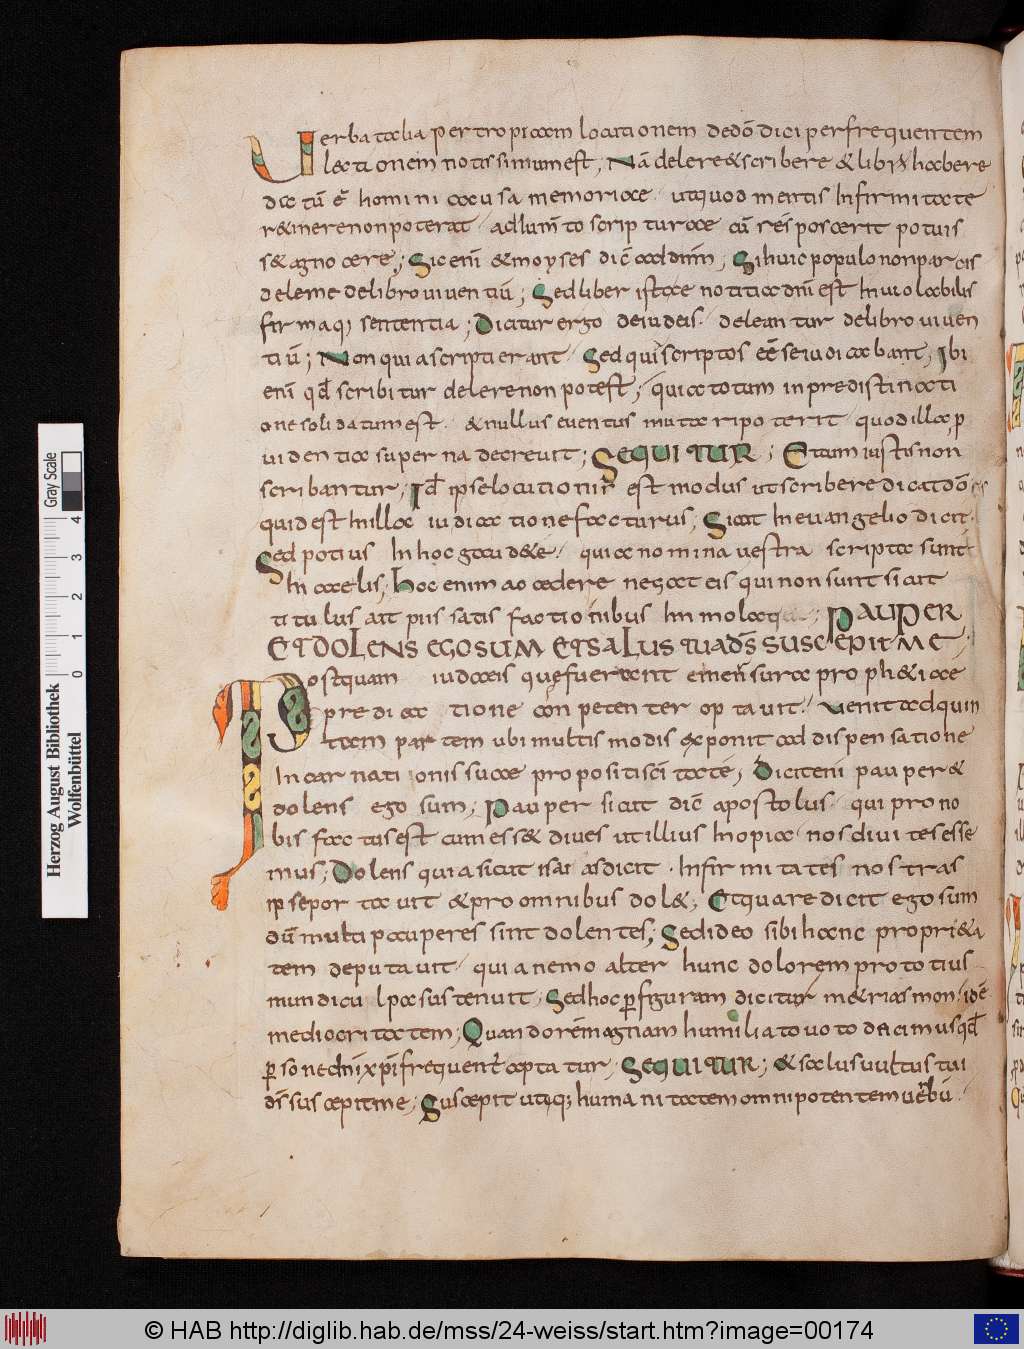 Uerba talia per tropicam locutionem dedō dici per frequentem
lectionem notissimum est; Nā delere & scribere & librū habere
dictū ē homini causa memoriae. utquod mentis Infirmitate
r&inere non poterat adlum̄to scripturae cū res poscerit potuis
s& agnocere; Sic enī & moyses dic̄ ad dnm̄; Si huic populo non parcis
dele me de libro uiuentiū; Sed liber iste notitia dnī est Inuiolabilis
firmaq; sententia; Dicitur ergo de iudeis. deleantur de libro uiuen
tiū; Non quia scripti erant Sed qui scriptos eē se iudicabant; Ibi
enī qd̄ scribitur delere non potest; quia totum in predistinati
one solidatum est. & nullus euentus mutari poterit quod illa p
uidentia superna decreuit; SEQUITUR; Et cum iustis non
scribantur; Id̄ ipse locutionis est modus ut scribere dicat dō
quid est In illo iudicatione facturus; Sicut In euangelio dicit.
Sed potius In hoc gaud&e. quia nomina uestra scripta sunt
In caelis; hoc enim accedere negat eis qui non sunt sicut
titulus ait piis satisfactionibus Inmolati; PAUPER
ET DOLENS EGO SUM ET SALUS TUA DS̄ SUSCEPIT ME
Postquam iudaeis que fuerant emensura proph&iae
predicatione conpetenter optauit. Uenit ad quin
tam partem ubi multis modis exponit ad dispensatione
Incarnationis suae propositis citate; Dicit enī pauper &
dolens ego sum; Pauper sicut dic̄ apostolus qui pro no
bis factus est cum ess& diues ut illius Inopia nos diuites esse
mus; Dolens quia sicut isaias dicit. Infirmitates nostras
ipse portauit & pro omnibus dol&; Et quare dicit ego sum
dū multi pauperes sint dolentes; Sed ideo sibi hanc propri&a
tem deputauit quia nemo alter hunc dolorem pro totius
mundi culpa sustenuit; Sed hoc p figuram dicitur m&riasmon; idē
mediocritatem; Quando rem magnam humiliato uoto dicimus qd̄
p sone dnī xpī frequent aptatur; SEQUITUR; & salus uultus tui
ds̄ suscepit me; Suscepit utiq; humanitatem omnipotentem uerbū.
Herzog August Bibliothek
Wolfenbüttel
Gray Scale
0 1 2 3 4
© HAB http://diglib.hab.de/mss/24-weiss/start.htm?image=00174